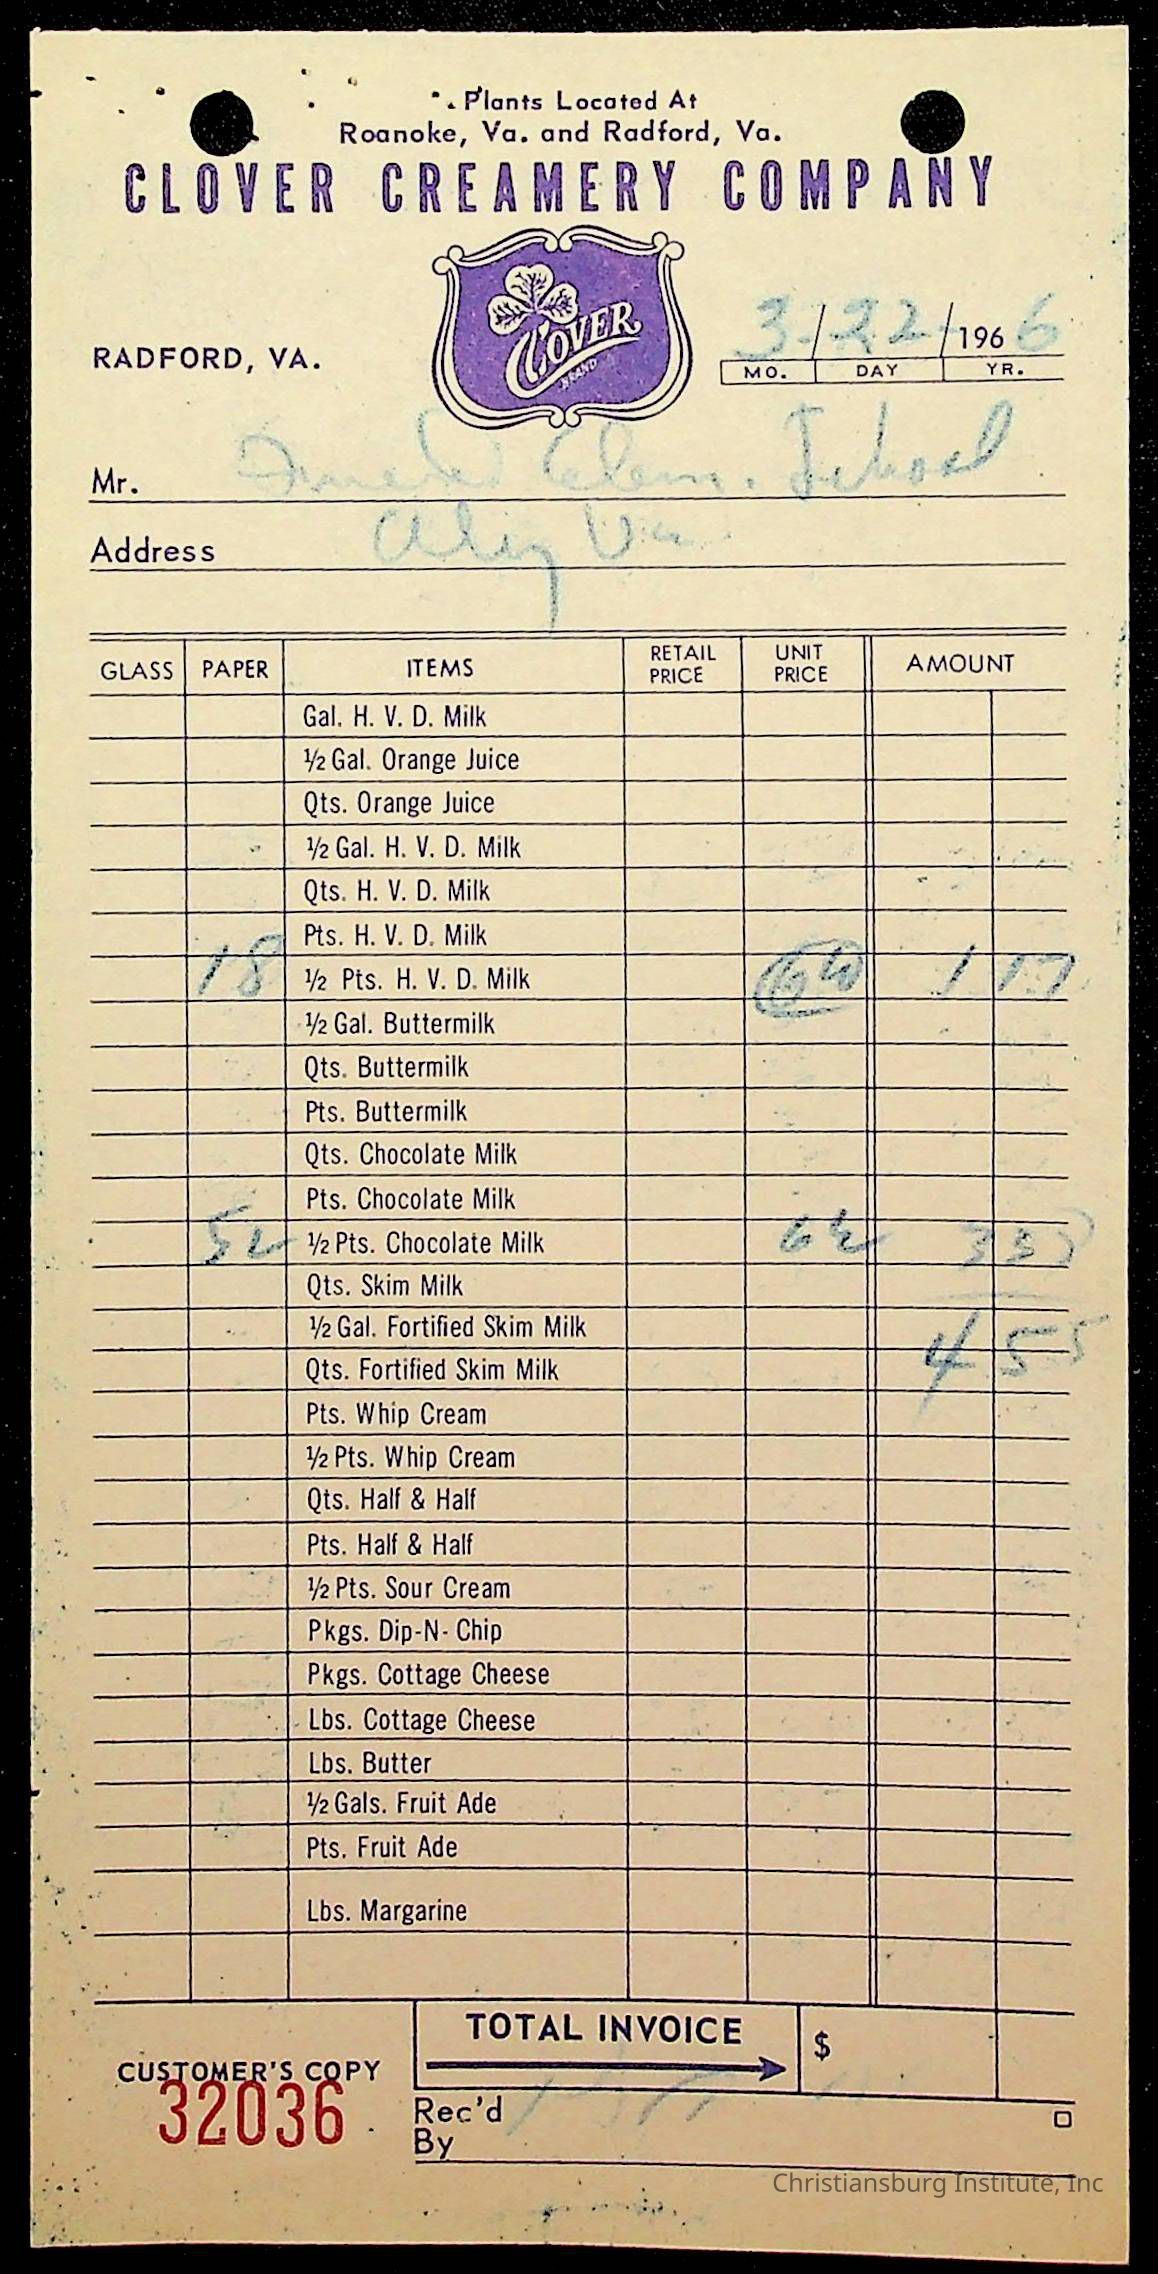 Plants Located At
Roanoke, Va. and Radford, Va.
CLOVER CREAMERY COMPANY
CLOVER
BRAND
RADFORD, VA.
3/22/1966
MO. DAY YR.
Mr. Elem. School
Address Va
GLASS PAPER ITEMS RETAIL PRICE UNIT PRICE AMOUNT
Gal. H. V. D. Milk
½ Gal. Orange Juice
Qts. Orange Juice
½ Gal. H. V. D. Milk
Qts. H. V. D. Milk
Pts. H. V. D. Milk
18 ½ Pts. H. V. D. Milk 1 17
½ Gal. Buttermilk
Qts. Buttermilk
Pts. Buttermilk
Qts. Chocolate Milk
Pts. Chocolate Milk
52 ½ Pts. Chocolate Milk 6½
Qts. Skim Milk
½ Gal. Fortified Skim Milk
4 55
Qts. Fortified Skim Milk
Pts. Whip Cream
½ Pts. Whip Cream
Qts. Half & Half
Pts. Half & Half
½ Pts. Sour Cream
Pkgs. Dip-N-Chip
Pkgs. Cottage Cheese
Lbs. Cottage Cheese
Lbs. Butter
½ Gals. Fruit Ade
Pts. Fruit Ade
Lbs. Margarine
TOTAL INVOICE $
CUSTOMER'S COPY
32036
Rec'd
By
Christiansburg Institute, Inc